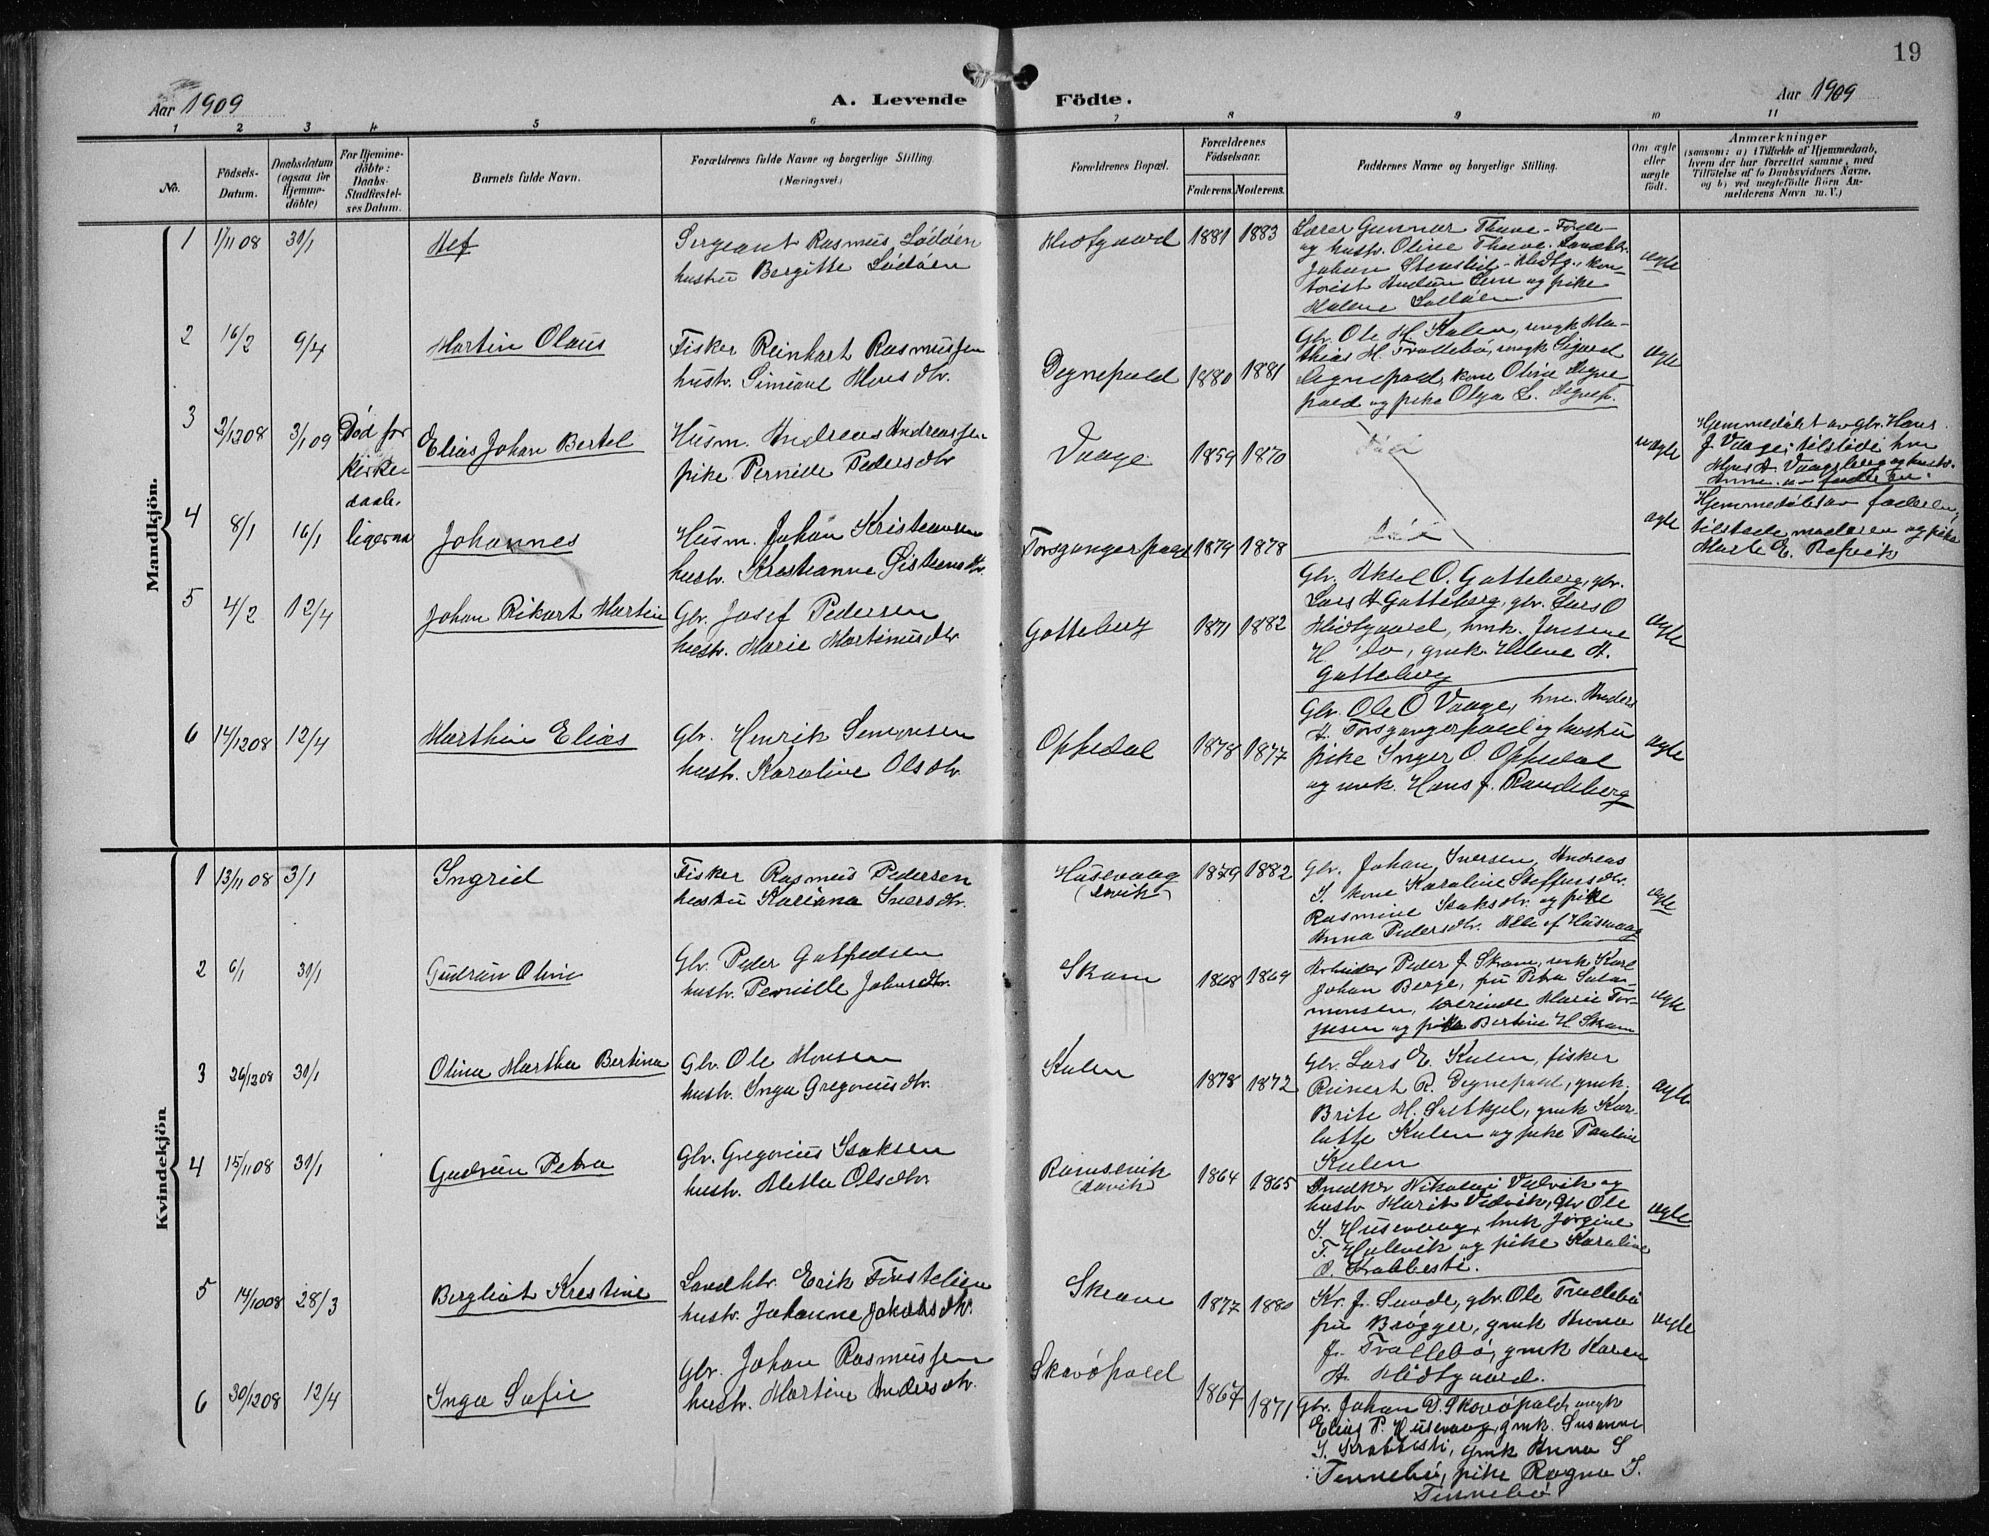 19
Aar 1909
A. Levende Födte.
Aar 1909
1 2 3 4 5 6 7 8 9 10 11
No.
Födsels-Datum.
Daabsdatum (ogsaa for Hjemmedöbte)
For Hjemmedöbte: Daabs-Stadfæstelses Datum.
Barnets fulde Navn.
Forældrenes fulde Navne og borgerlige Stilling.
(Næringsvei.)
Forældrenes Bopæl.
Forældrenes Födselsaar.
Faderens. Moderens.
Faddernes Navne og borgerlige Stilling.
Om ægte eller uægte födt.
Anmærkninger
(saasom: a) i Tilfælde af Hjemmedaab,
hvem der har forrettet samme, med
Tilföielse af to Daabsvidners Navne,
og b) ved uægtefödte Börn Anmelderens Navn m. V.)
Mandkjön.
1 1/11 08 31/1
Sergeant Rasmus Lödöen
hustru Bergitte Lödöen
Midtgaard 1881 1883
Lærer Gunnar
og hustr. Oline
og pike
ægte
2 16/2 9/4 Martin Olaus
Fisker Reinhart Rasmussen
hustr. Simiane Monsdtr.
Degnepold 1880 1881
Gbr. Ole M. Kulen, ungk. Ma-
thias M. Trollebø, ungk Sigurd
Degnepold, kone Oline Degne
pold og pike Olga L. Degnep.
ægte
3 2/12 08 3/1 09 Død før
kirke-
daab.
Elias Johan Bertel
Husm. Andreas Andreassen
pike Pernille Pedersdtr
Vaage 1859 1870
Død
uægte
Hjemmedøbt av gbr. Hans
J. Vaage; tilstede hm
4 8/1 16/1 ligesaa Johannes
Husm. Johan Kristiansen
hustr. Kristianne
Torsgangerpold 1879 1878
Død
ægte
Hjemmedøbt av faderen,
tilstede moderen og pike
Marte E. Refvik
5 4/2 12/4 Johan Rikart Martin
Gbr. Josef Pedersen
hustr. Marie Martinusdtr
Gotteberg 1871 1882
Gbr. Aksel O. Gotteberg, gbr.
Lars A Gotteberg, gbr. Lars O
Midtgaard, kmk. Jensine
H. do, gmk. Helene A.
Gotteberg
ægte
6 14/12 08 12/4 Marthin Elias
Gbr. Henrik Simonsen
hustr. Karoline Olsdtr.
Oppedal 1878 1877
Gbr. Ole O Vaage, hm. Anders
A. Torsgangerpold og hustru
pike Inger O. Oppedal
og umk. Hans J. Randeberg
ægte
Kvindekjön
1 13/11 08 3/1 Ingrid
Fisker Rasmus Pedersen
hustru Kariana Iversdtr.
Husevaag
(Davik)
1879 1882
Gbr. Johan Iversen, Andreas
I. kone Karoline Steffensdtr.
Rasmine Isaksdtr. og pike
Anna Pedersdtr. Alle af Husevaag
ægte
2 6/1 31/1 Gudrun Oline
Gbr. Peder Gotfredsen
hustr. Pernille Johnsdtr.
Skram 1868 1869
Arbeider Peder J. Skram, umk Karl
Johan Berge, fru Petra Salo-
monsen, lærerinde Marie Tor-
jusen og pike Bertine H Skram
ægte
3 26/12 08 31/1 Olina Martha Bertina
Gbr. Ole Monsen
hustr. Inga Gregoriusdtr.
Kulen 1878 1872
Gbr. Lars E. Kulen, fisker
Reinert R. Degnepold, gmk.
Brite M. Saltkjel, gmk Kar-
lotte Kulen og pike Pauline
Kulen
ægte
4 15/11 08 31/1 Gudrun Petra
Gbr. Gregorius Isaksen
hustr. Metta Olsdtr
Ramsevik
(Davik)
1864 1865
Snedker Nikolai Vedvik og
hustr Marit Vedvik, gbr Ole
I. Husevaag, kmk Jørgine
T. Hulevik og pike Karoline
O. Krabbesti.
ægte
5 14/10 08 28/3 Bergliot Kristine
Landhdr. Erik Førstelien
hustr. Johanne Jakobsdtr.
Skram 1877 1880
Kr. J. Sunde, gbr. Ole Trollebø
fru Brøgger, gmk Anna
J. Trollebø, gmk Karen
A. Midtgaard.
ægte
6 30/12 08 12/4 Inga Sofie
Gbr. Johan Rasmussen
hustr. Martine Andersdtr.
Skavøpold 1867 1871
Gbr. Johan D. Skavøpold, ungk
Elias P. Husevaag, gmk. Susanne
I. Krabbesti, gmk Anna S
Tennebø, pike Ragna I.
Tennebø